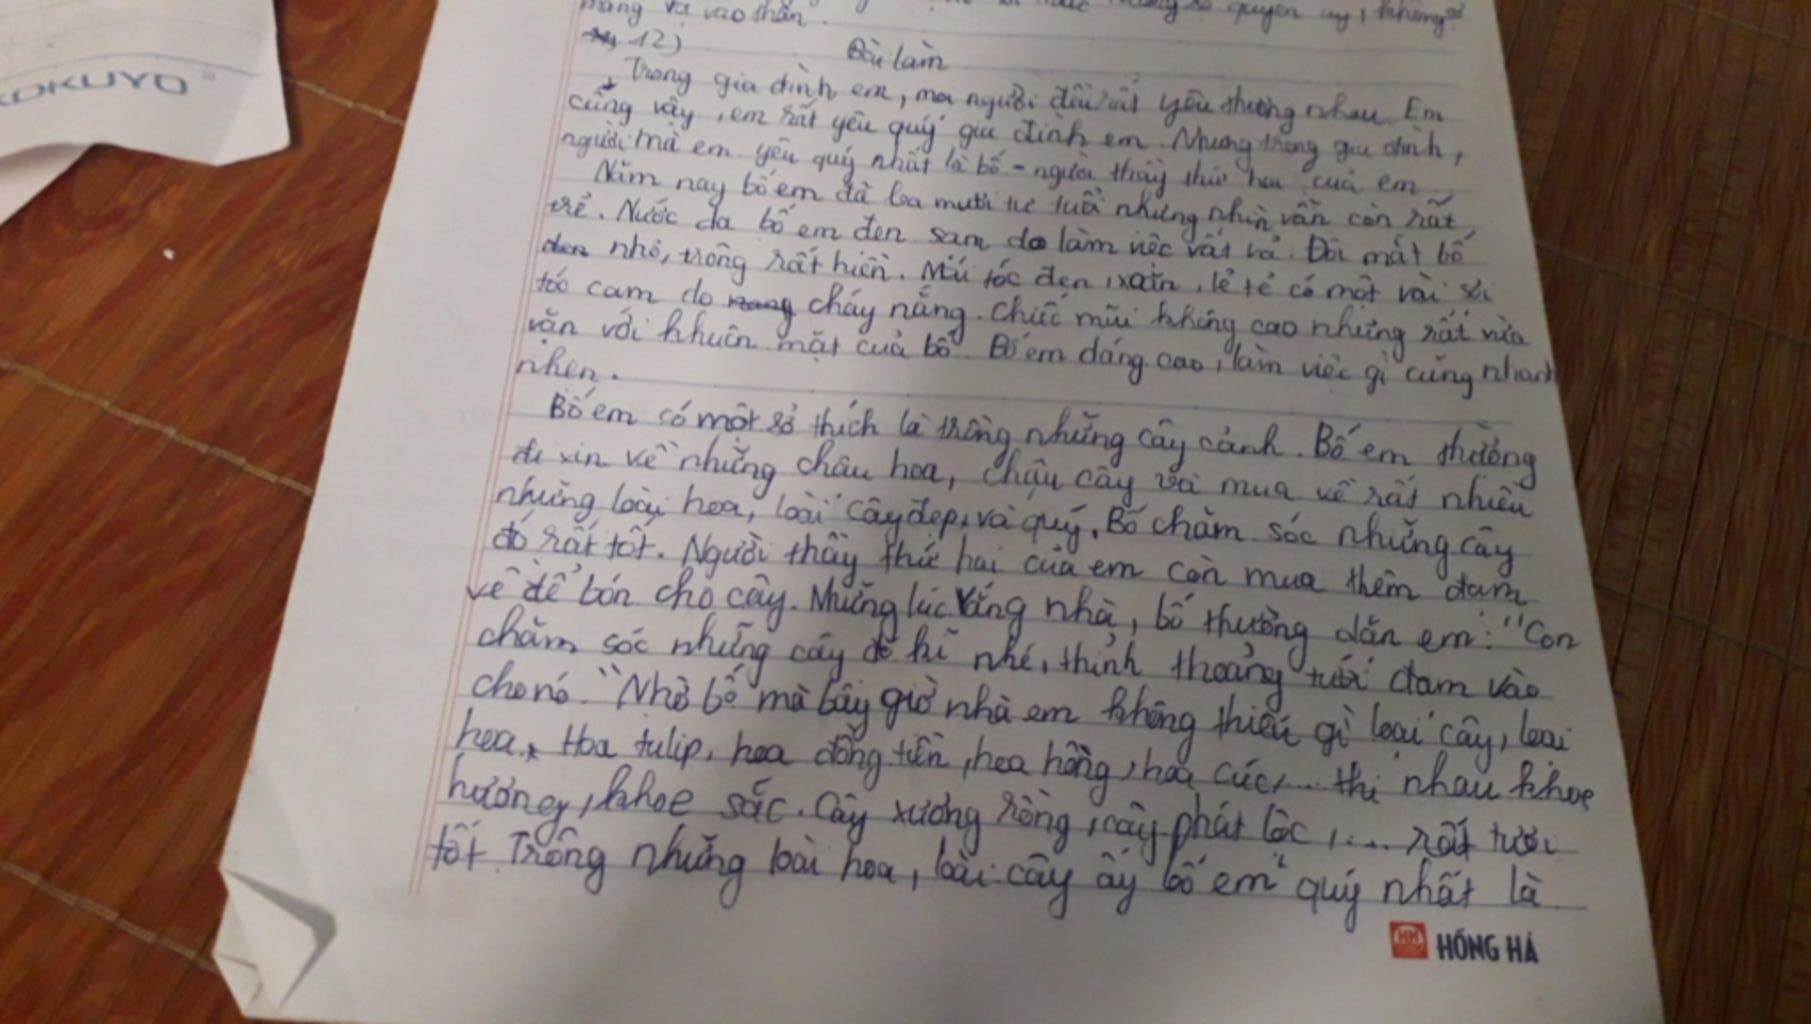 KOKUYO
mang vạ vào thân.
quyền uy, không
12)
Bài làm
Trong gia đình em, mọi người đều rất yêu thương nhau. Em
cũng vậy, em rất yêu quý gia đình em. Nhưng trong gia đình,
người mà em yêu quý nhất là bố - người thầy thứ hai của em.
Năm nay bố em đã ba mươi tư tuổi nhưng nhìn vẫn còn rất
trẻ. Nước da bố em đen sạm do làm việc vất vả. Đôi mắt bố
đen nhỏ, trông rất hiền. Mái tóc đen, xoăn, lẻ tẻ có một vài sợi
tóc cam do cháy nắng. Chiếc mũi không cao nhưng rất vừa
vặn với khuôn mặt của bố. Bố em dáng cao, làm việc gì cũng nhanh
nhẹn.
Bố em có một sở thích là trồng những cây cảnh. Bố em thường
đi xin về những chậu hoa, chậu cây và mua về rất nhiều
những loài hoa, loài cây đẹp, và quý. Bố chăm sóc những cây
đó rất tốt. Người thầy thứ hai của em còn mua thêm đạm
về để bón cho cây. Những lúc vắng nhà, bố thường dặn em: "Con
chăm sóc những cây để kĩ nhé, thỉnh thoảng tưới đạm vào
cho nó." Nhờ bố mà bây giờ nhà em không thiếu gì loại cây, loại
hoa. Hoa tulip, hoa đồng tiền, hoa hồng, hoa cúc,... thi nhau khoe
hương, khoe sắc. Cây xương rồng, cây phát lộc,.... rất tươi
tốt. Trong những loài hoa, loài cây ấy bố em quý nhất là
HỒNG HÀ